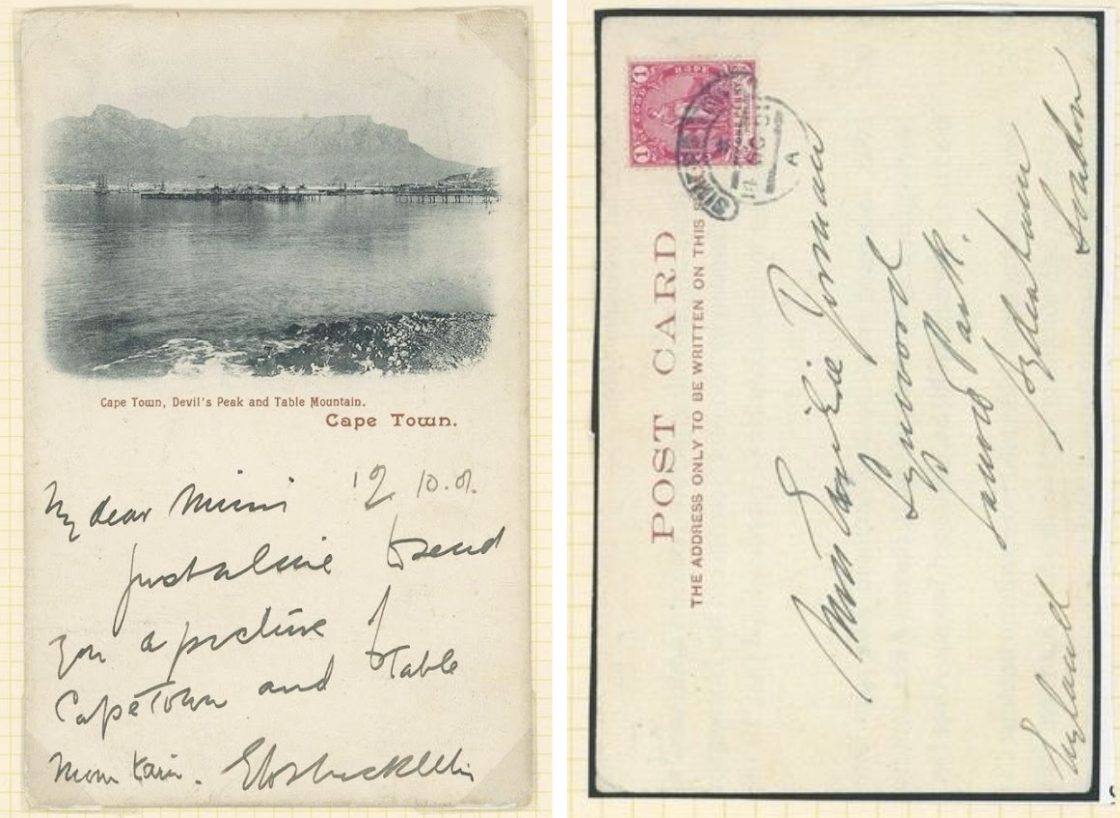 Cape Town, Devil's Peak and Table Mountain.
Cape Town.
12 10.01.
My dear Mimi
just a line to send
you a picture of
Cape Town and Table
Mountain.
1 HOPE 1
ONE PENNY
SIMON'S
POST CARD
THE ADDRESS ONLY TO BE WRITTEN ON THIS
Miss
Lynwood
Park.
Sydenham
London
England